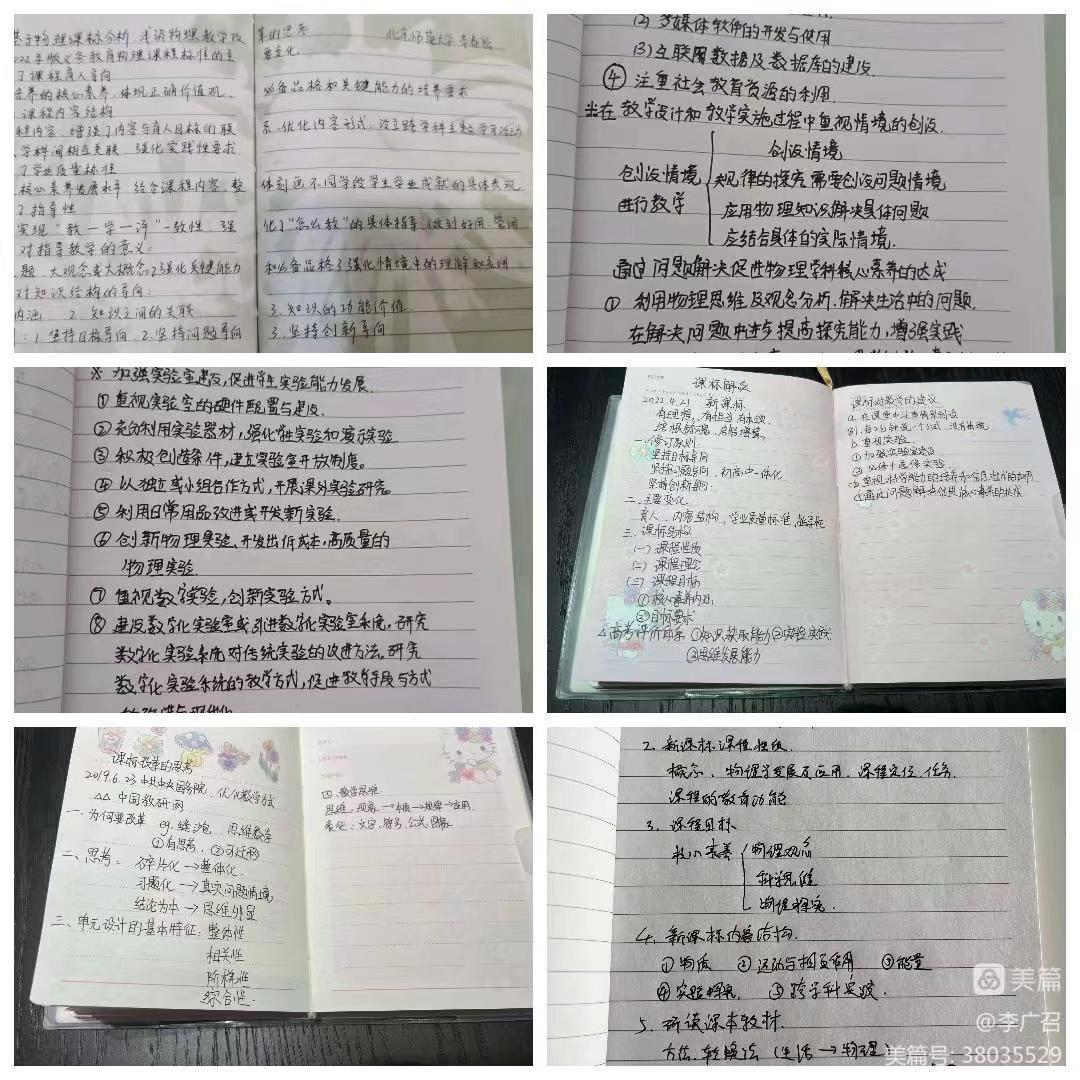 基于物理课标分析 浅谈物理教学改革的思考 北京师范大学 李春密
022年版义务教育物理课程标准的主要变化
了课程育人导向
培养的核心素养,体现正确价值观、必备品格和关键能力的培养要求
课程内容结构
程内容,增强了内容与育人目标的联系,优化内容形式,设立跨学科主题学习活动
学科间相互关联,强化实践性要求
了学业质量标准
核心素养发展水平,结合课程内容,整体刻画不同学段学生学业成就的具体表现
了指导性
实现“教—学—评”一致性,强化了“怎么教”的具体指导,做到好用、管用
对指导教学的意义:
题、大观念或大概念2强化关键能力和必备品格3强化情境中的理解和应用
对知识结构的导向:
内涵 2. 知识之间的关联 3. 知识的功能价值
:1. 坚持目标导向 2. 坚持问题导向 3. 坚持创新导向
(2) 多媒体软件的开发与使用
(3)互联网数据及数据库的建设.
④ 注重社会教育资源的利用.
※在教学设计和教学实施过程中重视情境的创设.
创设情境
创设情境 规律的探究需要创设问题情境
进行教学 应用物理知识解决具体问题
应结合具体的实际情境.
通过问题解决促进物理学科核心素养的达成
① 利用物理思维及观念分析、解决生活中的问题,
在解决问题中进步提高探究能力,增强实践
※ 加强实验室建设,促进学生实验能力发展.
① 重视实验室的硬件配置与建设.
② 充分利用实验器材,强化学生实验和演示实验
③ 积极创造条件,建立实验室开放制度。
④ 以独立或小组合作方式,开展课外实验研究。
⑤ 利用日常用品改进或开发新实验.
⑥ 创新物理实验、开发出低成本,高质量的
物理实验
⑦ 重视数字实验,创新实验方式。
⑧ 建设数字化实验室或引进数字化实验室系统,研究
数字化实验系统对传统实验的改进方法。研究
数字化实验系统的教学方式,促进教学手段与方式
课标解读
2022.4.21 新课标
有理想、有担当 有本领
一.修订原则
坚持目标导向
坚持问题导向、初高中一体化
坚持创新导向.
二、主要变化
育人、内容结构,学业质量标准,指导性
三、课标结构
(一)课程性质
(二)课程理念
(三)课程目标
①核心素养内涵
②目标要求
△高考评价体系 ①知识获取能力②实验实践
③思维发展能力
课标对教学的建议
a. 在课堂中注重情景创设
b. 重视实验
①加强实验室建设
课标改革的思考
2019.6.23 中共中央国务院、优化教学方式
△△ 中国教研网
一、为何要改革 eg. 思维教学
①有思考,②可迁移
二、思考: 碎片化→整体化.
习题化→真实问题情境
结论为本→思维外显
三、单元设计的基本特征:整体性
相关性
阶梯性
综合性.
四、教学思维
思维:现象→本质→规律→应用
表征:文字、符号、公式、图象
2. 新课标课程性质.
概念、物理学发展及应用、课程定位、任务.
课程的教育功能
3. 课程目标
核心素养 物理观念
科学思维
物理探究.
4. 新课标内容结构.
①物质 ②运动与相互作用 ③能量
④实验探究 ⑤跨学科实践.
5. 研读课本教材.
方法.转换法 (生活→物理)
美篇
@李广召
美篇号: 38035529